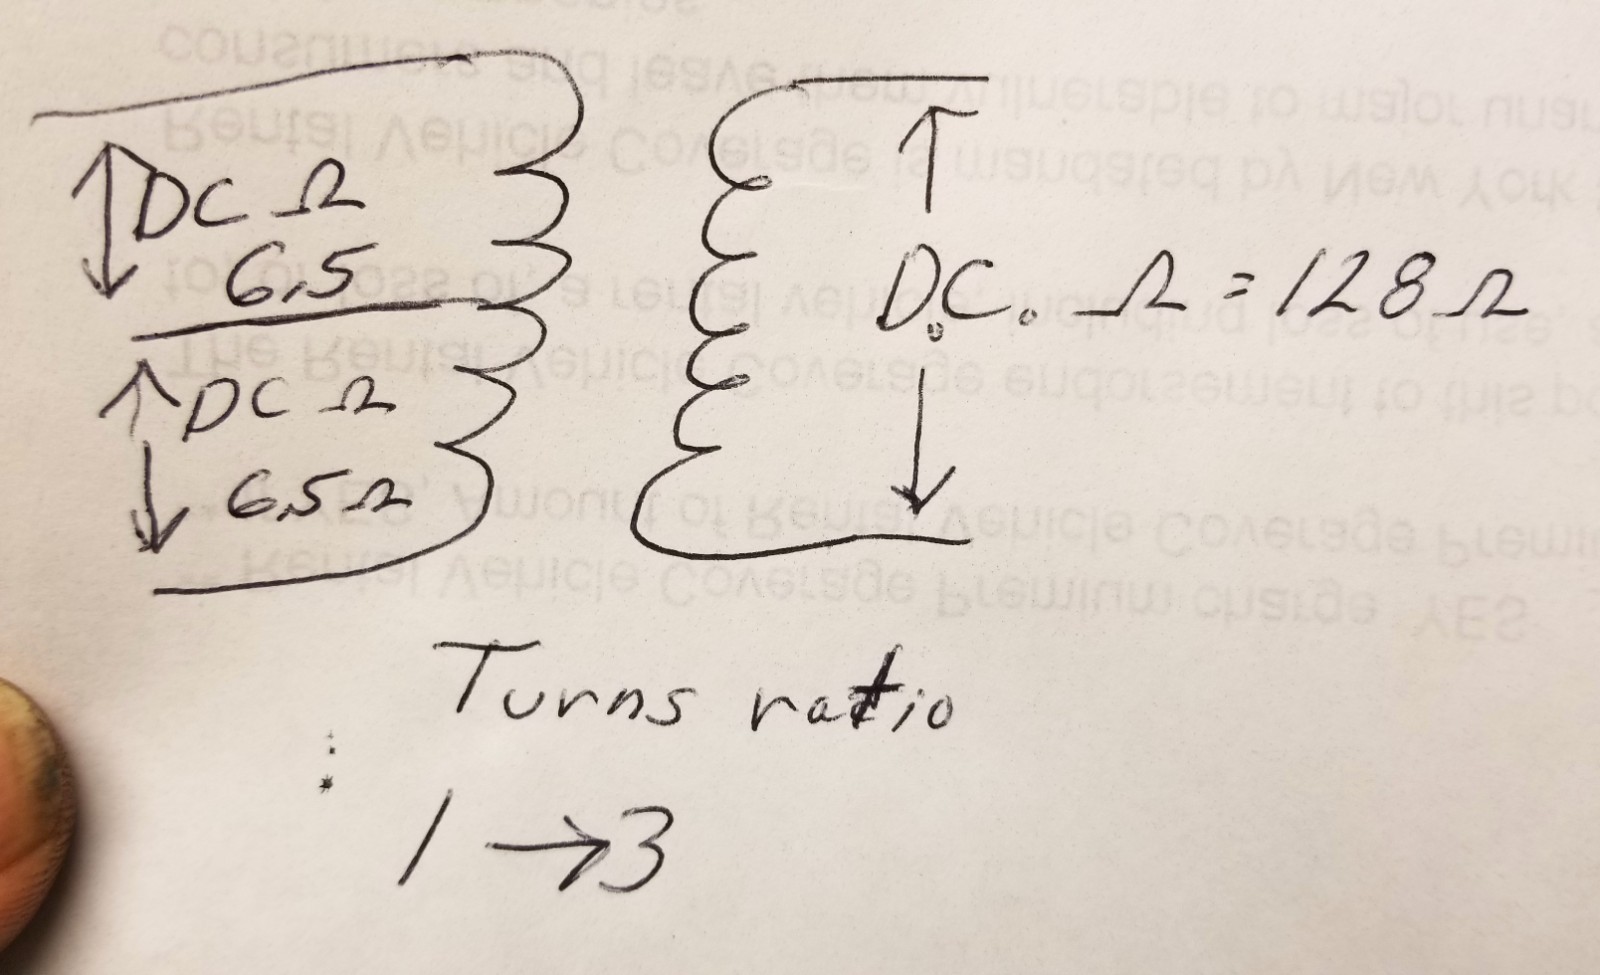 DC Ω
6.5
DC Ω
6.5Ω
D.C. Ω = 128 Ω
Turns ratio
1 → 3
consumers and leave them vulnerable to major unan
Rental Vehicle Coverage is mandated by New York
for loss of, a rental vehicle, including loss of use
The Rental Vehicle Coverage endorsement to this po
YES, Amount of Rental Vehicle Coverage Premi
Rental Vehicle Coverage Premium charge YES